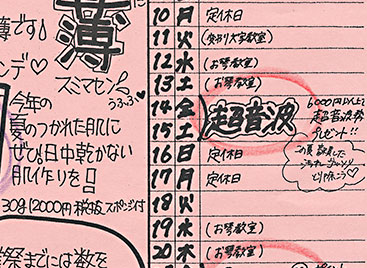 薄
に
薄です!
ンデ♡
スミマセん
うふふ♡
今年の
夏のつかれた肌に
ぜひ日中乾かない
肌作りを!!
30g(2000円税抜スポンジ付
祭までには数を
10 月 定休日
11 火 (文字教室)
12 水 (お琴教室)
13 土 (お琴教室)
14 金
15 土
超音波
6000円以上で
超音波
プレゼント!!
16 日 定休日
17 月 定休日
18 火
19 水 (お琴教室)
20 木 (お琴教室)